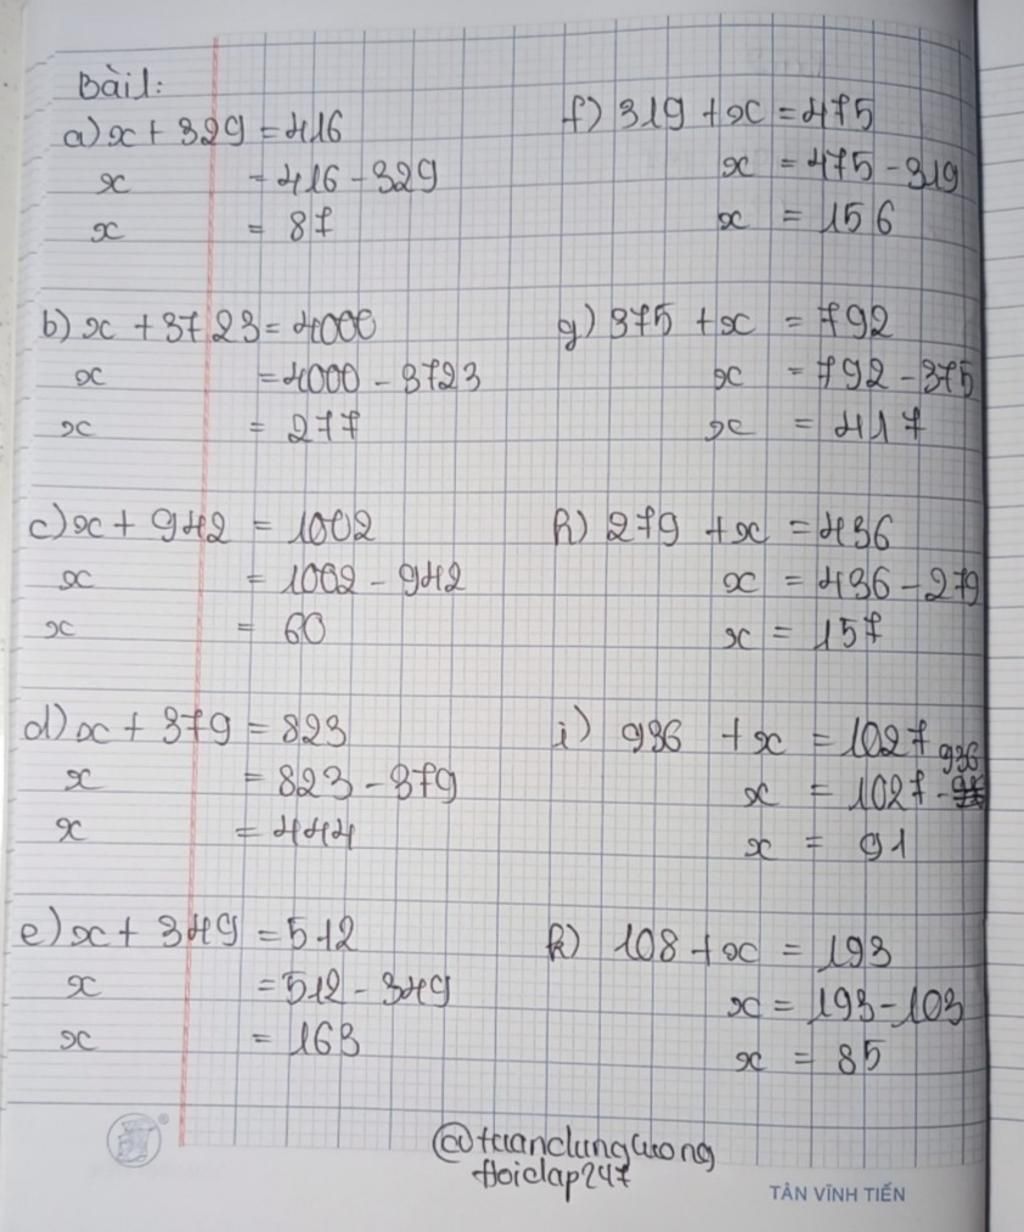 Bài 1:
a) x + 329 = 416
x = 416 - 329
x = 87
b) x + 3723 = 4000
x = 4000 - 3723
x = 277
c) x + 942 = 1002
x = 1002 - 942
x = 60
d) x + 379 = 823
x = 823 - 379
x = 444
e) x + 349 = 512
x = 512 - 349
x = 163
f) 319 + x = 475
x = 475 - 319
x = 156
g) 375 + x = 792
x = 792 - 375
x = 417
h) 279 + x = 436
x = 436 - 279
x = 157
i) 936 + x = 1027
x = 1027 - 936
x = 91
k) 108 + x = 193
x = 193 - 103
x = 85
@tuandungluong
Hoidap247
TÂN VĨNH TIẾN